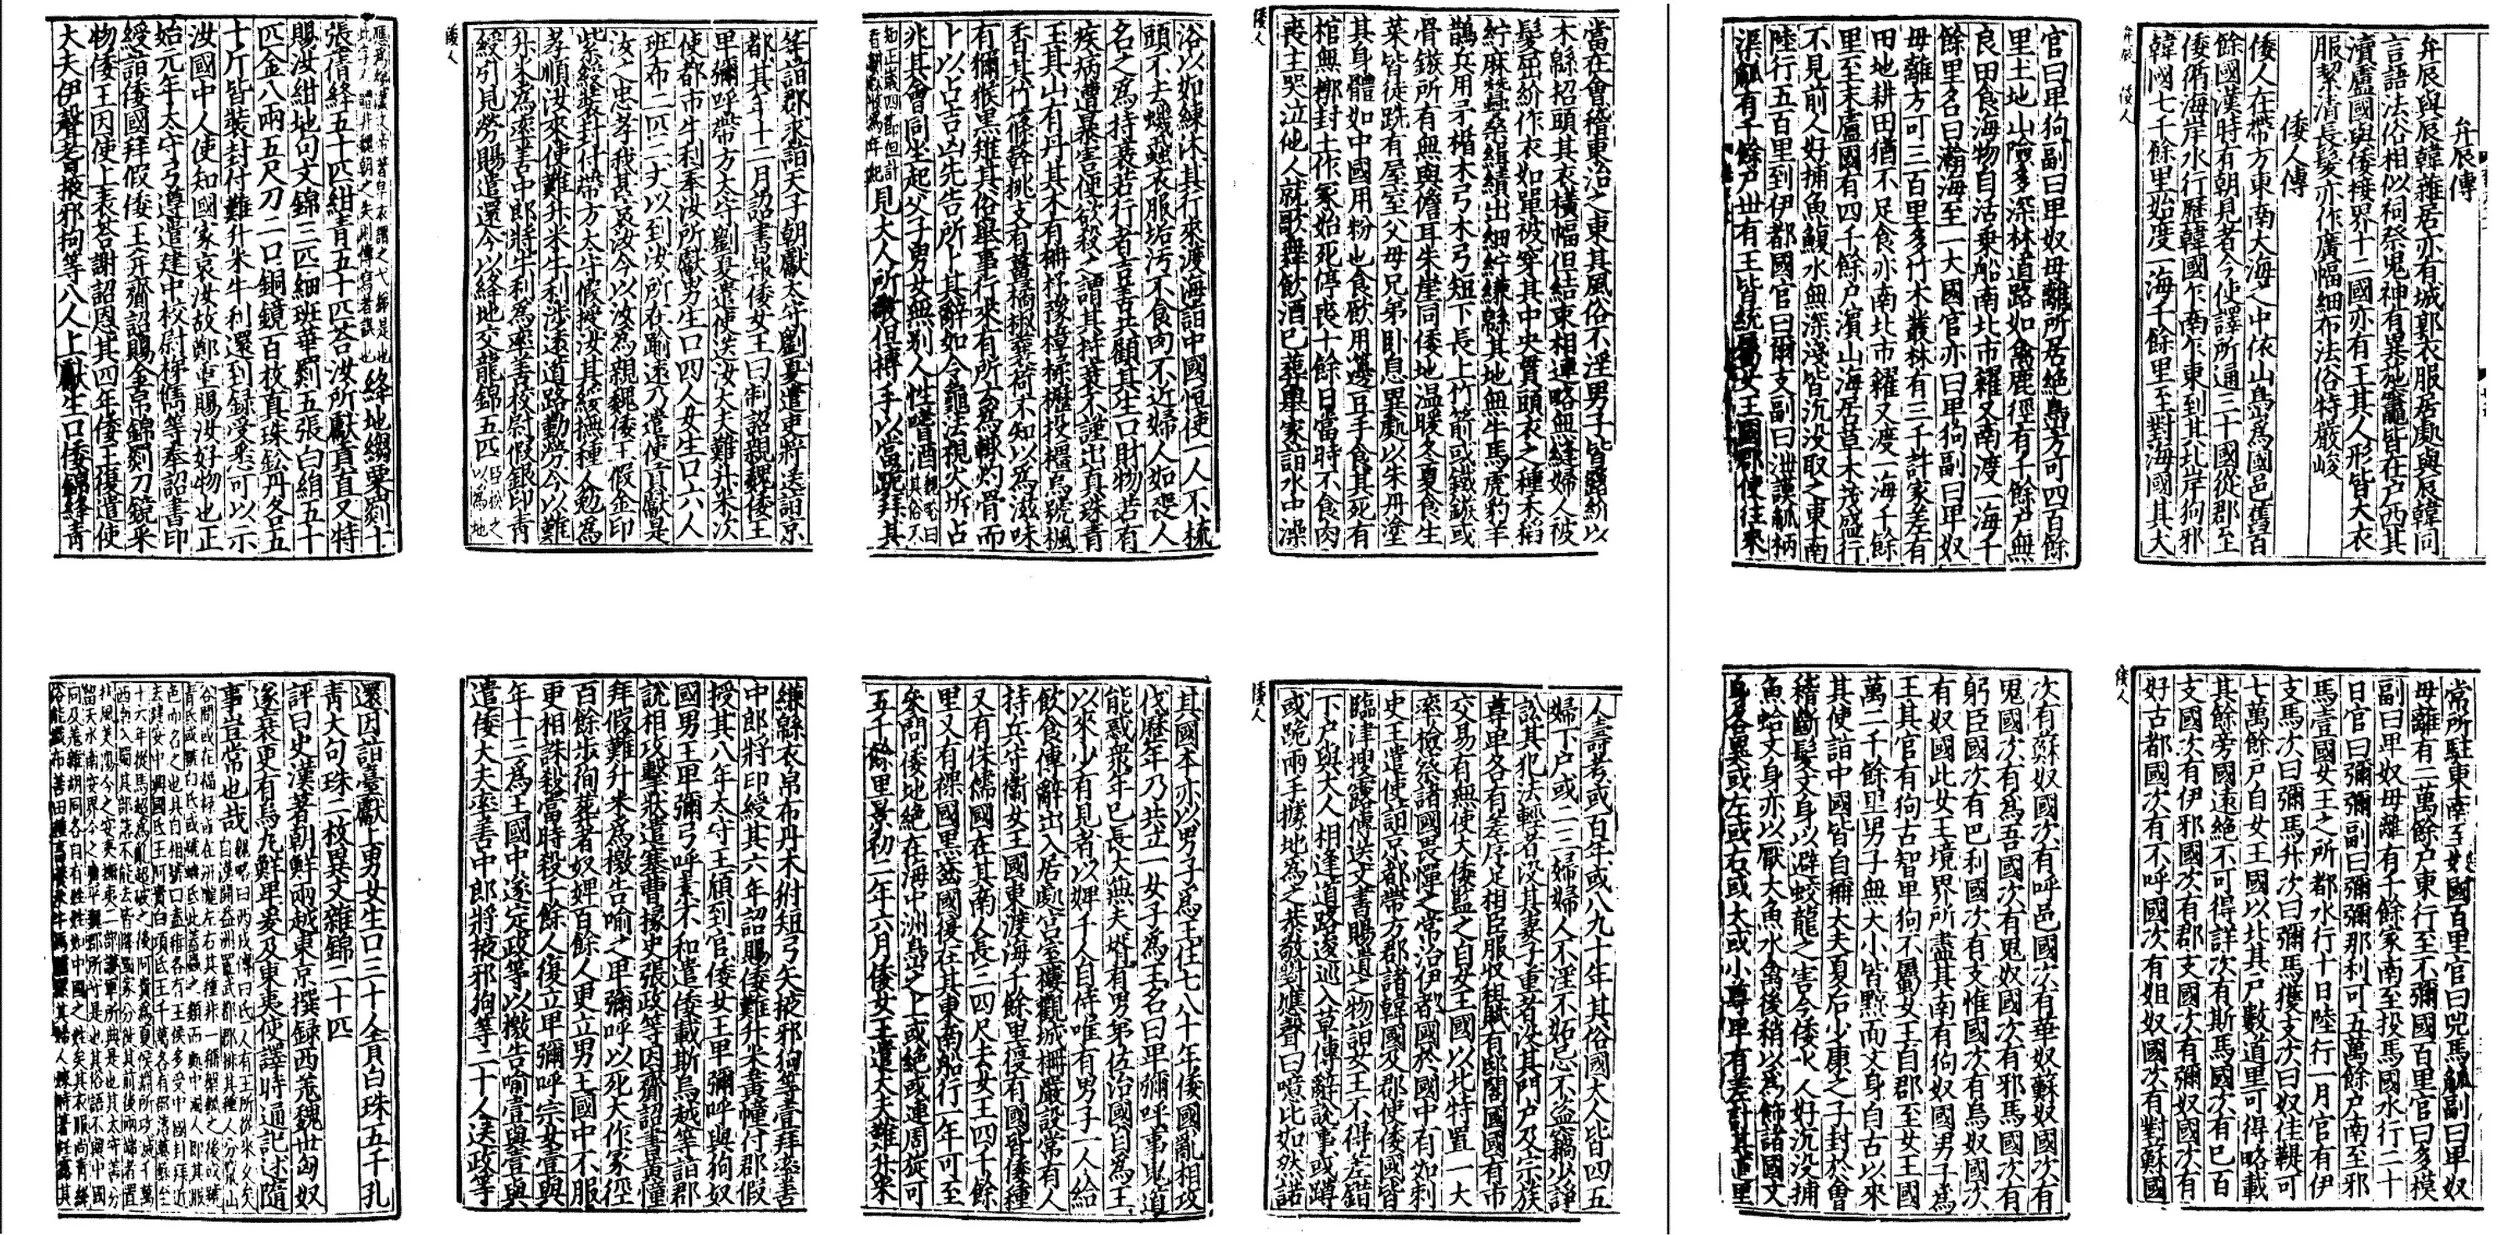 弁辰傳
弁辰與辰韓雜居亦有城郭衣服居處與辰韓同
言語法俗相似祠祭鬼神有異施竈皆在戶西其
瀆盧國與倭接界十二國亦有王其人形皆大衣
服絜清長髮亦作廣幅細布法俗特嚴峻
倭人傳
倭人在帶方東南大海之中依山島為國邑舊百
餘國漢時有朝見者今使譯所通三十國從郡至
倭循海岸水行歷韓國乍南乍東到其北岸狗邪
韓國七千餘里始度一海千餘里至對海國其大
弁辰 倭人
官曰卑狗副曰卑奴母離所居絕島方可四百餘
里土地山險多深林道路如禽鹿徑有千餘戶無
良田食海物自活乗船南北市糴又南渡一海千
餘里名曰瀚海至一大國官亦曰卑狗副曰卑奴
母離方可三百里多竹木叢林有三千許家差有
田地耕田猶不足食亦南北市糴又渡一海千餘
里至末盧國有四千餘戶濱山海居草木茂盛行
不見前人好捕魚鰒水無深淺皆沉沒取之東南
陸行五百里到伊都國官曰爾支副曰泄謨觚柄
渠觚有千餘戶世有王皆統屬女王國郡使往來
常所駐東南至奴國百里官曰兕馬觚副曰卑奴
母離有二萬餘戶東行至不彌國百里官曰多模
副曰卑奴母離有千餘家南至投馬國水行二十
日官曰彌彌副曰彌彌那利可五萬餘戶南至邪
馬壹國女王之所都水行十日陸行一月官有伊
支馬次曰彌馬升次曰彌馬獲支次曰奴佳鞮可
七萬餘戶自女王國以北其戶數道里可得略載
其餘旁國遠絕不可得詳次有斯馬國次有已百
支國次有伊邪國次有郡支國次有彌奴國次有
好古都國次有不呼國次有姐奴國次有對蘇國
倭人
次有蘇奴國次有呼邑國次有華奴蘇奴國次有
鬼國次有為吾國次有鬼奴國次有邪馬國次有
躬臣國次有巴利國次有支惟國次有烏奴國次
有奴國此女王境界所盡其南有狗奴國男子為
王其官有狗古智卑狗不屬女王自郡至女王國
萬二千餘里男子無大小皆黥面文身自古以來
其使詣中國皆自稱大夫夏后少康之子封於會
稽斷髮文身以避蛟龍之害今倭水人好沉沒捕
魚蛤文身亦以厭大魚水禽後稍以為飾諸國文
身各異或左或右或大或小尊卑有差計其道里
當在會稽東治之東其風俗不淫男子皆露紒以
木緜招頭其衣橫幅但結束相連略無縫婦人被
髮屈紒作衣如單被穿其中央貫頭衣之種禾稻
紵麻蠶桑緝績出細紵縑緜其地無牛馬虎豹羊
鵲兵用矛楯木弓木弓短下長上竹箭或鐵鏃或
骨鏃所有無與儋耳朱崖同倭地温暖冬夏食生
菜皆徒跣有屋室父母兄弟卧息異處以朱丹塗
其身體如中國用粉也食飲用籩豆手食其死有
棺無槨封土作冢始死停喪十餘日當時不食肉
喪主哭泣他人就歌舞飲酒已葬舉家詣水中澡
倭人
浴以如練沐其行來渡海詣中國恒使一人不梳
頭不去蟣蝨衣服垢污不食肉不近婦人如喪人
名之為持衰若行者吉善共顧其生口財物若有
疾病遭暴害便欲殺之謂其持衰不謹出真珠青
玉其山有丹其木有柟杼豫樟楺櫪投橿烏號楓
香其竹篠簳桃支有薑橘椒蘘荷不知以為滋味
有獮猴黑雉其俗舉事行來有所云為輒灼骨而
卜以占吉凶先告所卜其辭如令龜法視火坼占
兆其會同坐起父子男女無別人性嗜酒魏略曰其俗不
知正歲四節但計春耕秋收為年紀見大人所敬但搏手以當跪拜其
人壽考或百年或八九十年其俗國大人皆四五
婦下戶或二三婦婦人不淫不妬忌不盜竊少諍
訟其犯法輕者沒其妻子重者沒其門戶及宗族
尊卑各有差序足相臣服收租賦有邸閣國國有市
交易有無使大倭監之自女王國以北特置一大
率檢察諸國畏憚之常治伊都國於國中有如刺
史王遣使詣京都帶方郡諸韓國及郡使倭國皆
臨津搜露傳送文書賜遺之物詣女王不得差錯
下戶與大人相逢道路逡巡入草傳辭說事或蹲
或跪兩手據地為之恭敬對應聲曰噫比如然諾
倭人
其國本亦以男子為王住七八十年倭國亂相攻
伐歷年乃共立一女子為王名曰卑彌呼事鬼道
能惑衆年已長大無夫壻有男弟佐治國自為王
以來少有見者以婢千人自侍唯有男子一人給
飲食傳辭出入居處宮室樓觀城柵嚴設常有人
持兵守衛女王國東渡海千餘里復有國皆倭種
又有侏儒國在其南人長三四尺去女王四千餘
里又有裸國黑齒國復在其東南船行一年可至
參問倭地絕在海中洲島之上或絕或連周旋可
五千餘里景初二年六月倭女王遣大夫難升米
等詣郡求詣天子朝獻太守劉夏遣吏將送詣京
都其年十二月詔書報倭女王曰制詔親魏倭王
卑彌呼帶方太守劉夏遣使送汝大夫難升米次
使都市牛利奉汝所獻男生口四人女生口六人
班布二匹二丈以到汝所在踰遠乃遣使貢獻是
汝之忠孝我甚哀汝今以汝為親魏倭王假金印
紫綬裝封付帶方太守假授汝其綏撫種人勉為
孝順汝來使難升米牛利涉遠道路勤勞今以難
升米為率善中郎將牛利為率善校尉假銀印青
綬引見勞賜遣還今以絳地交龍錦五匹臣松之以為地
倭人
應為綈漢文帝著皂衣謂之弋綈是也此字不體非魏朝之失則傳寫者誤也絳地縐粟罽十
張蒨絳五十匹紺青五十匹荅汝所獻貢直又特
賜汝紺地句文錦三匹細班華罽五張白絹五十
匹金八兩五尺刀二口銅鏡百枚真珠鈆丹各五
十斤皆裝封付難升米牛利還到録受悉可以示
汝國中人使知國家哀汝故鄭重賜汝好物也正
始元年太守弓遵遣建中校尉梯儁等奉詔書印
綬詣倭國拜假倭王并齎詔賜金帛錦罽刀鏡采
物倭王因使上表荅謝詔恩其四年倭王復遣使
大夫伊聲耆掖邪狗等八人上獻生口倭錦絳青
縑緜衣帛布丹木𤝔短弓矢掖邪狗等壹拜率善
中郎將印綬其六年詔賜倭難升米黃幢付郡假
授其八年太守王頎到官倭女王卑彌呼與狗奴
國男王卑彌弓呼素不和遣倭載斯烏越等詣郡
說相攻擊狀遣塞曹掾史張政等因齎詔書黃幢
拜假難升米為檄告喻之卑彌呼以死大作冢徑
百餘步狥葬者奴婢百餘人更立男王國中不服
更相誅殺當時殺千餘人復立卑彌呼宗女壹與
年十三為王國中遂定政等以檄告喻壹與壹與
遣倭大夫率善中郎將掖邪狗等二十人送政等
還因詣臺獻上男女生口三十人貢白珠五千孔
青大句珠二枚異文雜錦二十匹
評曰史漢著朝鮮兩越東京撰録西羌魏世匈奴
遂衰更有烏丸鮮卑爰及東夷使譯時通記述隨
事豈常也哉